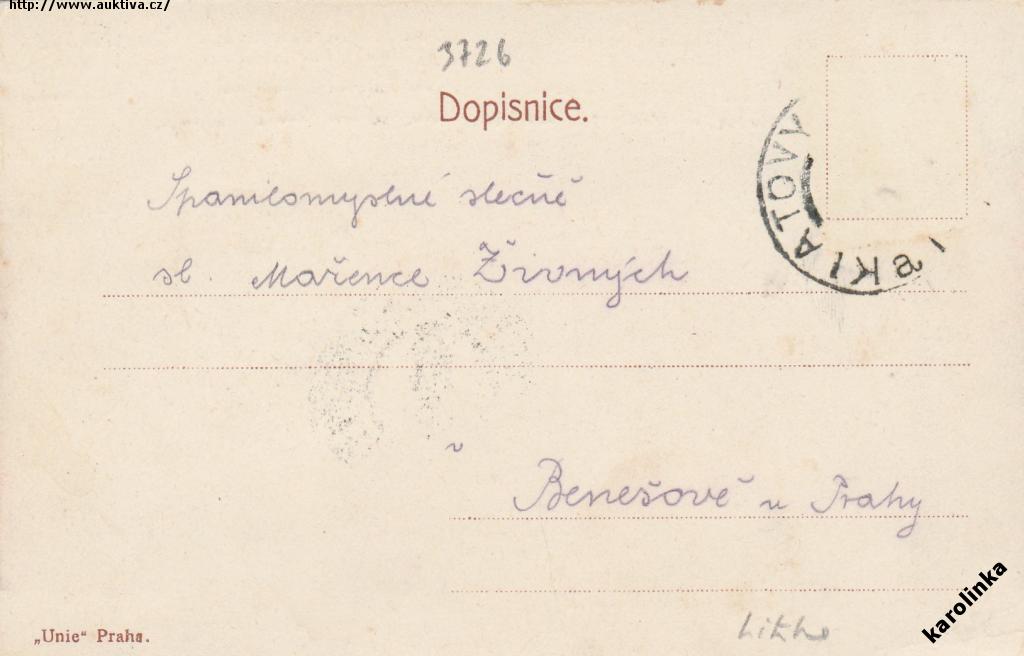 http://www.auktiva.cz/
3726
Dopisnice.
KLATOVY
Spanilomyslné slečně
sl. Mařence Živných
v
Benešově u Prahy
„Unie“ Praha.
Litho
karolinka